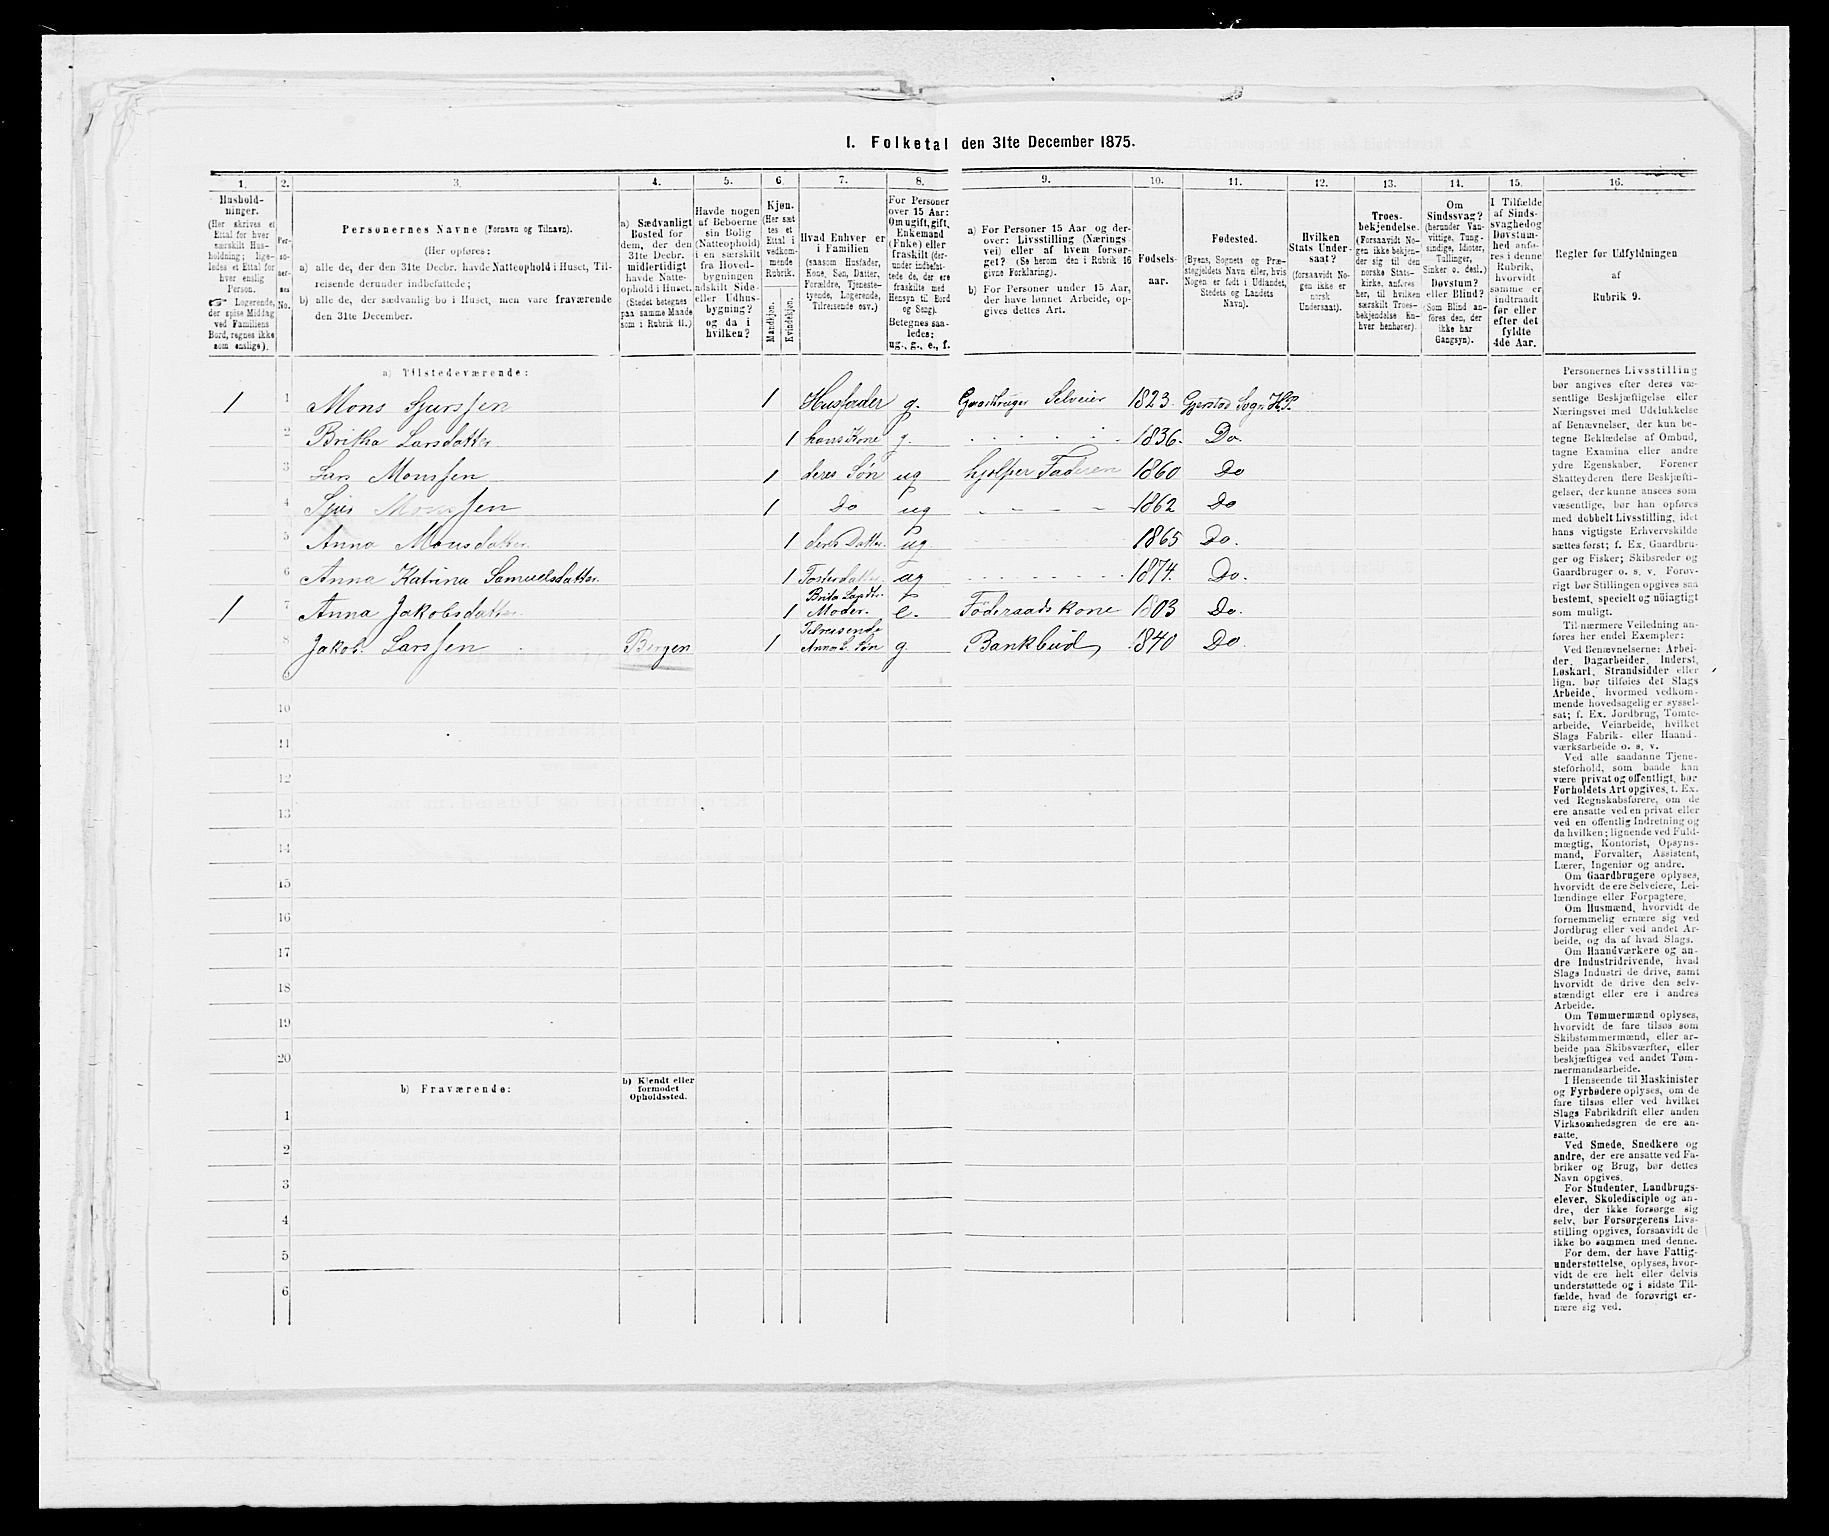 I. Folketal den 31te December 1875.
1. 2. 3. 4. 5. 6. 7. 8. 9. 10. 11. 12. 13. 14. 15. 16.
Husholdninger.
(Her skrives et
Ettal for hver
særskilt Husholdning;
ligeledes et Ettal for
hver enslig
Person.
☞ Logerende,
der spise Middag
ved Familiens
Bord, regnes ikke
som enslige).
Personernes No.
Personernes Navne (Fornavn og Tilnavn).
(Her opføres:
a) alle de, der den 31te Decbr. havde Natteophold i Huset, Tilreisende
derunder indbefattede;
b) alle de, der sædvanlig bo i Huset, men vare fraværende
den 31te December.
a) Sædvanligt
Bosted for
dem, der den
31te Decbr.
midlertidigt
havde Natteophold
i Huset.
(Stedet betegnes
paa samme Maade
som i Rubrik 11.)
Havde nogen
af Beboerne
sin Bolig
(Natteophold)
i en særskilt
fra Hovedbygningen
adskilt Side-
eller Udhusbygning?
og da i
hvilken?
Kjøn.
(Her sættes
et
Ettal i
vedkommende
Rubrik.
Mandkjøn.
Kvindekjøn.
Hvad Enhver er
i Familien
(saasom Husfader,
Kone, Søn, Datter,
Forældre, Tjenestetyende,
Logerende,
Tilreisende osv.)
For Personer
over 15 Aar:
Om ugift, gift,
Enkemand
(Enke) eller
fraskilt (derunder
indbefattede
de, der ere
fraskilte med
Hensyn til Bord
og Seng).
Betegnes saaledes:
ug., g., e., f.
a) For Personer 15 Aar og derover:
Livsstilling (Næringsvei)
eller af hvem forsørget?
(Se herom den i Rubrik 16
givne Forklaring).
b) For Personer under 15 Aar,
der have lønnet Arbeide, opgives
dettes Art.
Fødselsaar.
Fødested.
(Byens, Sognets og Præstegjeldets
Navn eller, hvis
Nogen er født i Udlandet,
Stedets og Landets
Navn).
Hvilken
Stats Undersaat?
(forsaavidt Nogen
ikke er
norsk
Undersaat).
Troesbekjendelse.
(Forsaavidt Nogen
ikke bekjender
sig til den
norske Statskirke,
anføres
her, til hvilken
særskilt Troesbekjendelse
Enhver
henhører).
Om
Sindssvag?
(herunder Vanvittige,
Tungsindige,
Idioter,
Sinker o. desl.)
Døvstum?
eller Blind?
Som Blind anføres
den, der
ikke har
Gangsyn).
I Tilfælde
af Sindssvaghed og
Døvstumhed
anføres
i denne
Rubrik,
hvorvidt
samme er
indtraadt
før eller
efter det
fyldte
4de Aar.
Regler for Udfyldningen
af
Rubrik 9.
a) Tilstedeværende:
1 1 Mons Sjurssen 1 Husfader g. Gaardbruger Selveier 1823 Gjerstad Sogn H.P.
2 Britha Larsdatter 1 hans Kone g. 1836. Do.
3 Lars Monssen 1 deres Søn ug hjelper Faderen 1860 Do
4 Sjur Monssen 1 Do ug 1862 Do
5 Anna Monsdatter 1 deres Datter ug. 1865 Do.
6 Anna Katrina Samuelsdatter. 1 Fosterdatter ug 1874. Do.
1 7 Anna Jakobsdatter 1 Moder. e. Föderaadskone 1803 Do.
8 Jakob Larssen Bergen 1 Tilreisende Søn g. Bankbud 1840 Do.
9
10
11
12
13
14
15
16
17
18
19
20
b) Fraværende:
b) Kjendt eller
formodet
Opholdssted.
1
2
3
4
5
6
Personernes Livsstilling
bør angives efter deres væsentlige
Beskjæftigelse eller
Næringsvei med Udelukkelse
af Benævnelser, der kun betegne
Beklædelse af Ombud,
tagne Examina eller andre
ydre Egenskaber. Forener
Skatteyderen flere Beskjæftigelser,
der kunne ansees som
væsentlige, bør han opføres
med dobbelt Livsstilling, idet
hans vigtigste Erhvervskilde
sættes først; f. Ex. Gaardbruger
og Fisker; Skibsreder og
Gaardbruger o. s. v. Forøvrigt
bør Stillingen opgives saa
bestemt, specielt og nøiagtigt
som muligt.
Til nærmere Veiledning anføres
her endel Exempler:
Ved Benævnelserne: Arbeider,
Dagarbeider, Inderst,
Løskarl, Strandsidder eller
lign. bør tilføies det Slags
Arbeide, hvormed vedkommende
hovedsagelig er sysselsat;
f. Ex. Jordbrug, Tomtearbeide,
Veiarbeide, hvilket
Slags Fabrik- eller Haandværksarbeide
o. s. v.
Ved alle saadanne Tjenesteforhold,
som baade kan
være privat og offentligt, bør
Forholdets Art opgives, t. Ex.
ved Regnskabsførere, om de
ere ansatte ved en privat eller
ved en offentlig Indretning og
da hvilken; lignende ved Fuldmægtig,
Kontorist, Opsynsmand,
Forvalter, Assistent,
Lærer, Ingeniør og andre.
Om Gaardbrugere oplyses,
hvorvidt de ere Selveiere, Leilændinge
eller Forpagtere.
Om Husmænd, hvorvidt de
fornemmelig ernære sig ved
Jordbrug eller ved andet Arbeide,
og da af hvad Slags.
Om Haandværkere og andre
Industridrivende, hvad
Slags Industri de drive, samt
hvorvidt de drive den selvstændigt
eller ere i andres
Arbeide.
Om Tømmermænd oplyses,
hvorvidt de fare tilsøs som
Skibstømmermænd, eller arbeide
paa Skibsværfter, eller
beskjæftiges ved andet Tømmermandsarbeide.
I Henseende til Maskinister
og Fyrbødere oplyses, om de
fare tilsøs eller ved hvilket
Slags Fabrikdrift eller anden
Virksomhedsgren de ere ansatte.
Ved Smede, Snedkere og
andre, der ere ansatte ved Fabriker
og Brug, bør dettes
Navn opgives.
For Studenter, Landbrugselever,
Skoledisciple og andre,
der ikke forsørge sig
selv, bør Forsørgerens Livsstilling
opgives, forsaavidt de
ikke bo sammen med denne.
For dem, der have Fattigunderstøttelse,
oplyses, hvorvidt
de ere helt eller delvis
understøttede og i sidste Tilfælde,
hvad de forøvrigt ernære
sig ved.